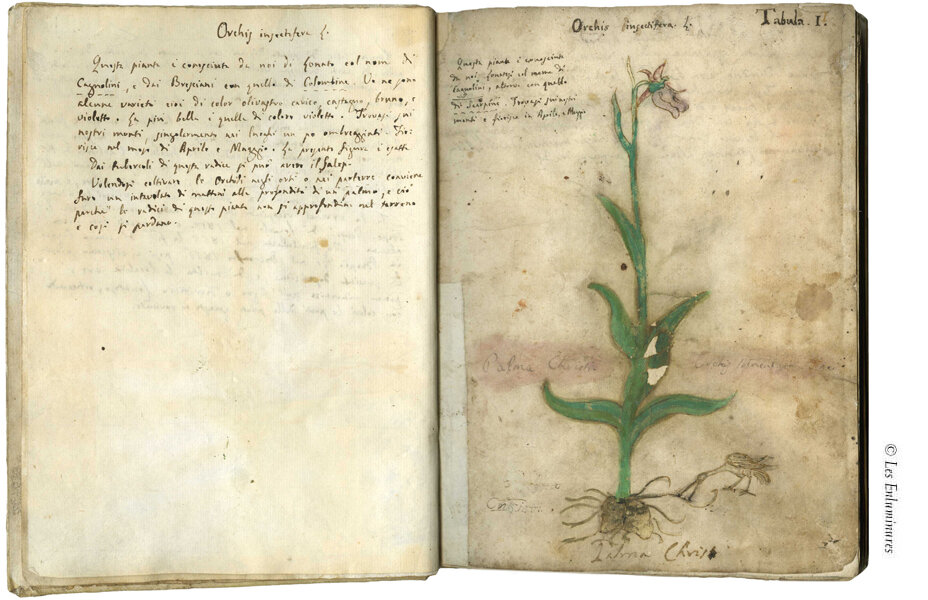 Orchis insectifera L.
Questa pianta è conosciuta da noi di Lonato col nome di
Cagnolini, e dai Bresciani con quello di Colombine. Ve ne sono
alcune varietà cioè di color olivastro carico, castagno, bruno, e
violetto. La più bella è quella di colore violetto. Trovasi sui
nostri monti, singolarmente nei luoghi un po ombreggianti. Fio-
risce nel mese di Aprile e Maggio. La presente figura è esatta
Dai tubercoli di questa radice si può avere il Salep.
Volendosi coltivare le Orchidi negli orti o nei parterre conviene
fare un intavolato di mattini alla profondità di un palmo, e ciò
perchè le radici di queste piante non si approfondino nel terreno
e così si perdano.
Orchis insectifera. L.
Tabula. I.
Questa pianta è conosciuta
da noi Lonatesi col nome di
Cagnolini, altrove con quello
di Scarpini. Trovasi sui nostri
monti e fiorisce in Aprile, e Maggio
Palma Christi
Orchis
Palma Christi
© Les Enluminures